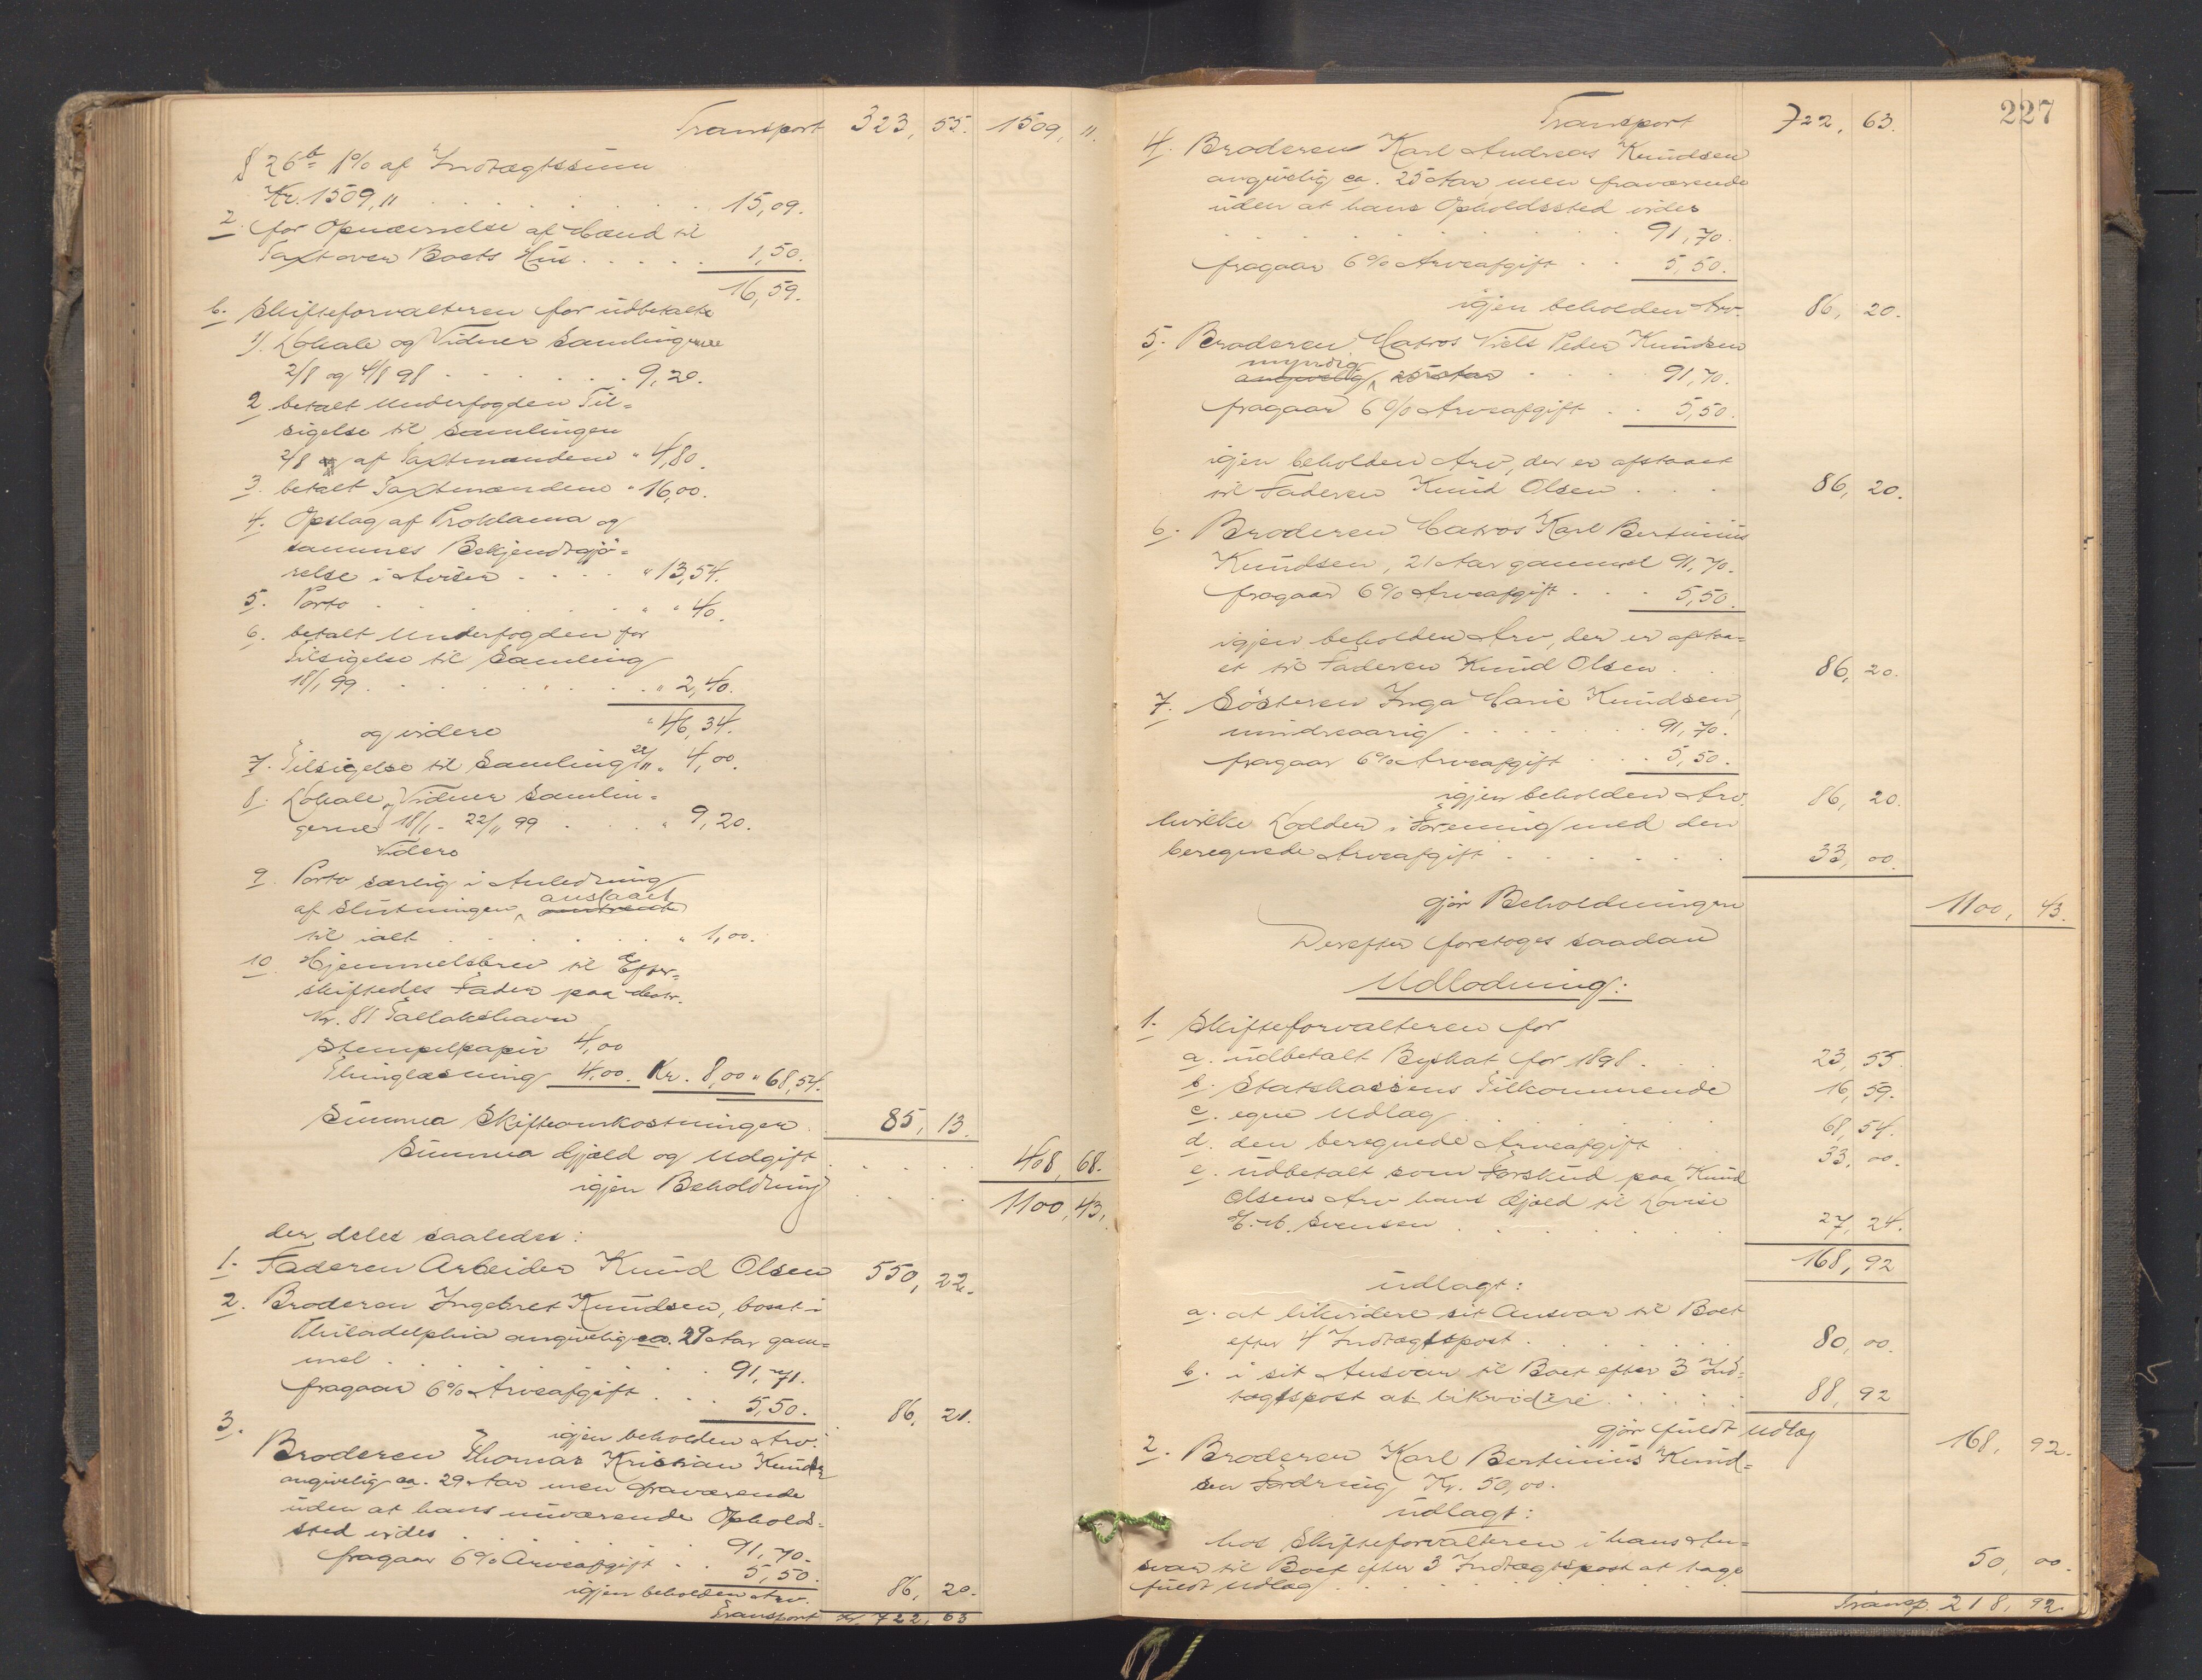 Transport 323, 55. 1509, 11.
§ 26 b 1% af Indtægtssum
Kr. 1509,11 . . . . . . 15,09.
2. for Opnævnelse af Mænd til
Taxt over Boets Hus . . . . . 1,50.
16,59.
b. Skifteforvalteren for udbetalte
1). Lokale og Vidner Samlingerne
2/8 og 4/8 98 . . . . . . 9,20.
2 betalt Underfogden Til=
sigelse til Samlingen
2/8 og af Taxtmændene " 4,80.
3. betalt Taxtmændene " 16,00.
4. Opslag af Proklama og
sammes Bekjendtgjö=
relse i Aviser . . . . " 13,54.
5. Porto . . . . . . " " 40.
6. betalt Underfogden for
Tilsigelse til Samling
18/1 99 . . . . . . . " 2,40.
og videre " 46,34.
7. Tilsigelse til Samling 22/11 " 4,00.
8. Lokale og Vidner Samlin=
gerne 18/1 - 22/11 99 . . . . " 9,20.
Videre
9. Porto særlig i Anledning
af Slutningen anslaaet
til ialt . . . . . . " 1,00.
10 Hjemmelsbrev til Efter=
skiftedes Fader paa Matr.
Nr. 81 Tallakshavn
Stempelpapir 4,00
Thinglæsning 4,00. Kr. 8,00 " 68,54.
Summa Skifteomkostninger . 85, 13.
Summa Gjæld og Udgift . . . . . 408, 68.
igjen Beholdning . . . . 1100, 43.
der deles saaledes:
1. Faderen Arbeider Knud Olsen 550, 22.
2. Broderen Ingebret Knudsen, bosat i
Philadelphia angivelig ca. 29 Aar gam=
mel . . . . . . . . 91,71.
fragaar 6% Arveafgift . . . 5,50.
igjen beholden Arv. 86, 21.
3. Broderen Thomas Kristian Knuds
angivelig ca. 29 Aar men fraværende
uden at hans nuværende Ophold=
sted vides . . . . . . 91,70.
fragaar 6% Arveafgift . . 5,50.
igjen beholden Arv. 86, 20.
Transport Kr. 722, 63
227
Transport 722, 63.
4. Broderen Karl Andreas Knudsen
angivelig ca. 25 Aar, men fraværende
uden at hans Opholdssted vides
. . . . . . . . 91,70.
fragaar 6% Arveafgift . . 5,50.
igjen beholden Arv. 86, 20.
5. Broderen Matros Niels Peder Knudsen
myndig
angivelig 25 Aar . . . . 91,70.
fragaar 6% Arveafgift . . 5,50.
igjen beholden Arv, der er afstaaet
til Faderen Knud Olsen . . . 86, 20.
6. Broderen Matros Karl Bertinius
Knudsen, 21 Aar gammel 91,70.
fragaar 6% Arveafgift . . . 5,50.
igjen beholden Arv, der er afstaa=
et til Faderen Knud Olsen . . 86, 20.
7. Sösteren Inga Marie Knudsen,
mindreaarig . . . . . . 91,70.
fragaar 6% Arveafgift . . . 5,50.
igjen beholden Arv. 86, 20.
hvilke Lodder i Forening med den
beregnede Arveafgift . . . . . . 33, 00.
gjör Beholdningen 1100, 43.
Derefter foretoges saadan
Udlodning:
1. Skifteforvalteren for
a. udbetalt Byskat for 1898 . . . 23, 55.
b. Statskassens Tilkommende 16, 59.
c. egne Udlæg . . . . . . 68, 54.
d. den beregnede Arveafgift . . 33, 00.
e. udbetalt som Forskud paa Knud
Olsens Arv hans Gjæld til Lovise
E. M. Svensen . . . . . . 27, 24.
168, 92
udlagt:
a. at likvidere sit Ansvar til Boet
efter 4 Indtægtspost . . . . . . 80, 00.
b. i sit Ansvar til Boet efter 3 Ind=
tægtspost at likvidere . . . . . 88, 92
gjör fuldt Udlæg 168, 92.
2. Broderen Karl Bertinius Knud=
sen Fordring Kr. 50,00.
udlagt:
hos Skifteforvalteren i hans An=
svar til Boet efter 3 Indtægtspost at tage
fuldt Udlæg . . . . . . . . . . 50, 00.
Transp. 218, 92.